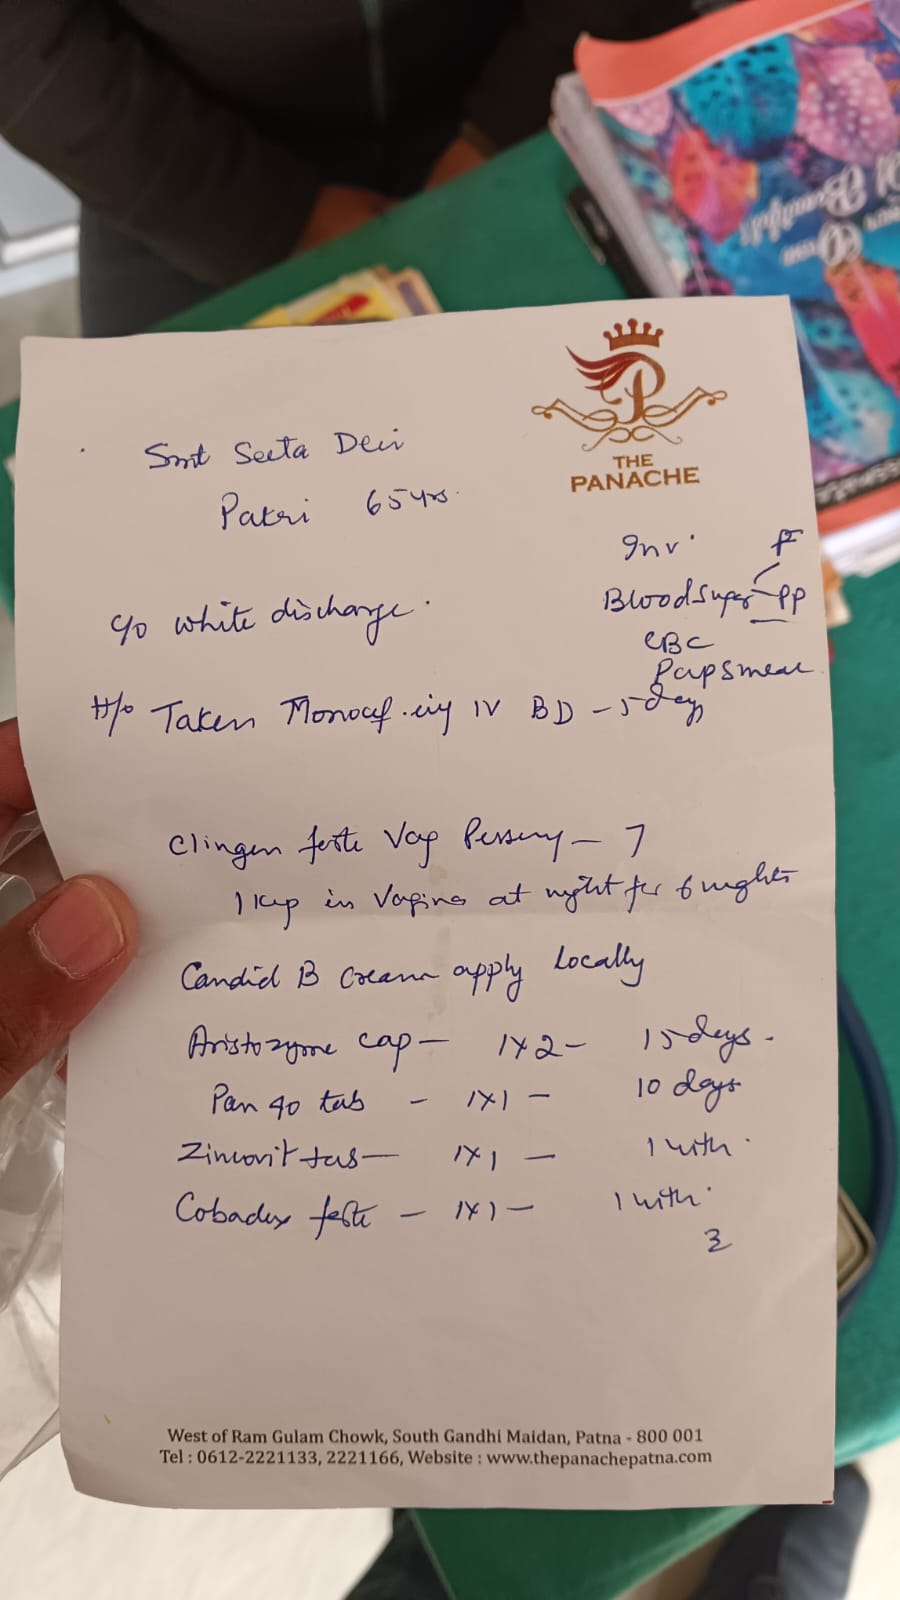 THE
PANACHE
Smt Seeta Devi
Pakri 65 yrs.
Inv. F
Blood Suger PP
CBC
Papsmear
c/o white discharge.
H/o Taken Monocef inj IV BD - 5 days
Clingen forte Vag Pessary - 7
1 kap in Vagina at night for 6 nights
Candid B Cream apply Locally
Aristozyme cap - 1x2 - 15 days.
Pan 40 tab - 1x1 - 10 days
Zincovit tab - 1x1 - 1
Cobadex forte - 1x1 - 1
West of Ram Gulam Chowk, South Gandhi Maidan, Patna - 800 001
Tel : 0612-2221133, 2221166, Website : www.thepanachepatna.com